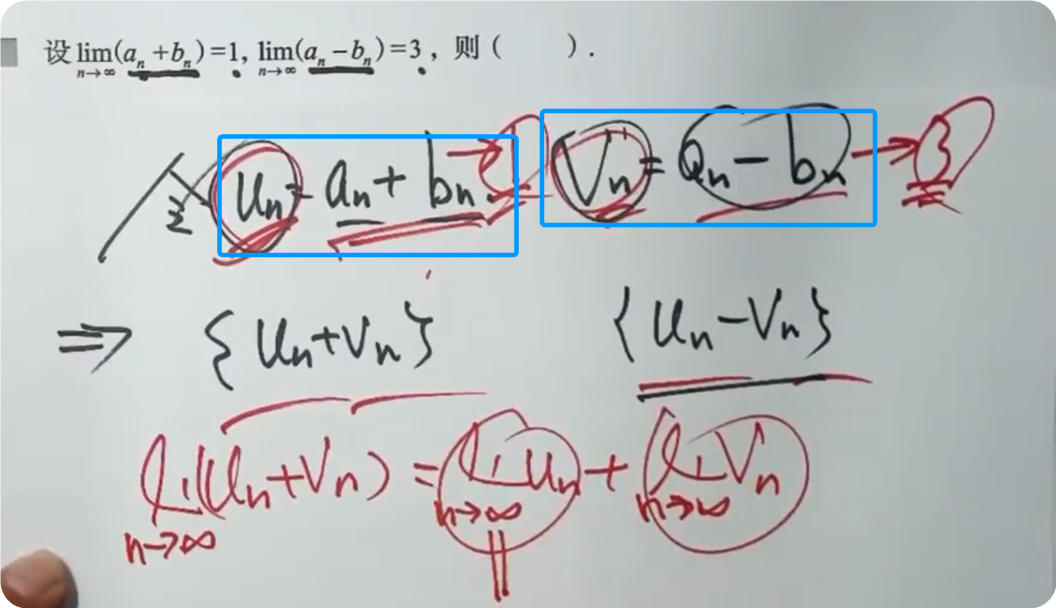 设 lim(aₙ+bₙ)=1, lim(aₙ-bₙ)=3, 则( ).
n→∞ n→∞
令 uₙ = aₙ + bₙ → 1 Vₙ = aₙ - bₙ → 3
⇒ {uₙ+Vₙ} {uₙ-Vₙ}
lim(uₙ+Vₙ) = lim uₙ + lim Vₙ
n→∞ n→∞ n→∞